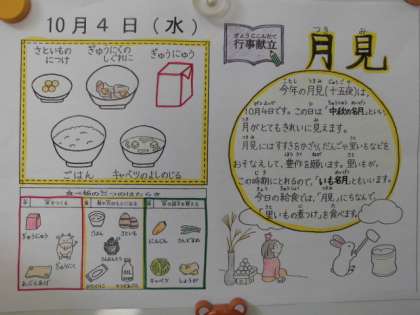 10月4日（水）
さといもの
につけ
ぎゅうにくの
しぐれに
ぎゅうにゅう
ごはん
キャベツのよしのじる
ぎょうじこんだて
行事献立
つきみ
月見
今年の月見（十五夜）は、
10月4日です。この日は「中秋の名月」といい、
月がとてもきれいに見えます。
月見にはすすきをかざり、だんごや里いもなどを
おそなえして、豊作を願います。里いもが、
この時期にとれるので、「いも名月」ともいいます。
今日の給食では、「月見」にちなんで、
「里いもの煮つけ」を食べます。
ぎゅうにゅう
ぎゅうにく
ごはん
さといも
にんじん
キャベツ
しょうが